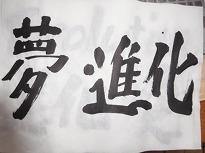 夢進化